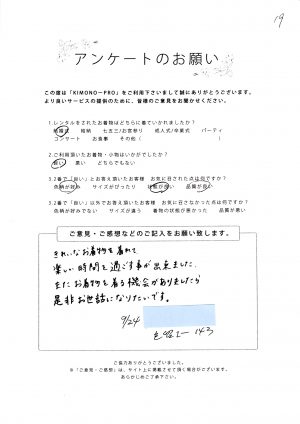 19
アンケートのお願い
この度は「KIMONO－PRO」をご利用下さいまして誠にありがとうございます。
より良いサービスの提供のために、皆様のご意見をお聞かせください。
1.レンタルをされたお着物はどちらに着ていかれましたか？
結婚式　結納　七五三/お宮参り　成人式/卒業式　パーティ
コンサート　お食事　その他（　　　）
2.ご利用頂いたお着物・小物はいかがでしたか？
良い　悪い　どちらでもない
3.2番で「良い」とお答え頂いたお客様　お気に召された点は何ですか？
色柄が好み　サイズがぴったり　状態が良い　品質が良い
3.2番で「良い」以外でお答え頂いたお客様　お気に召さなかった点は何ですか？
色柄が好みでない　サイズが違う　着物の状態が悪かった　品質が悪い
ご意見・ご感想などのご記入をお願い致します。
きれいなお着物を着れて
楽しい時間を過ごす事が出来ました。
またお着物を着る機会がありましたら
是非お世話になりたいです。
9/24
143
ご協力ありがとうございました。
※「ご意見・ご感想」は、サイト上に掲載させて頂く場合がございます。
あらかじめご了承下さい。